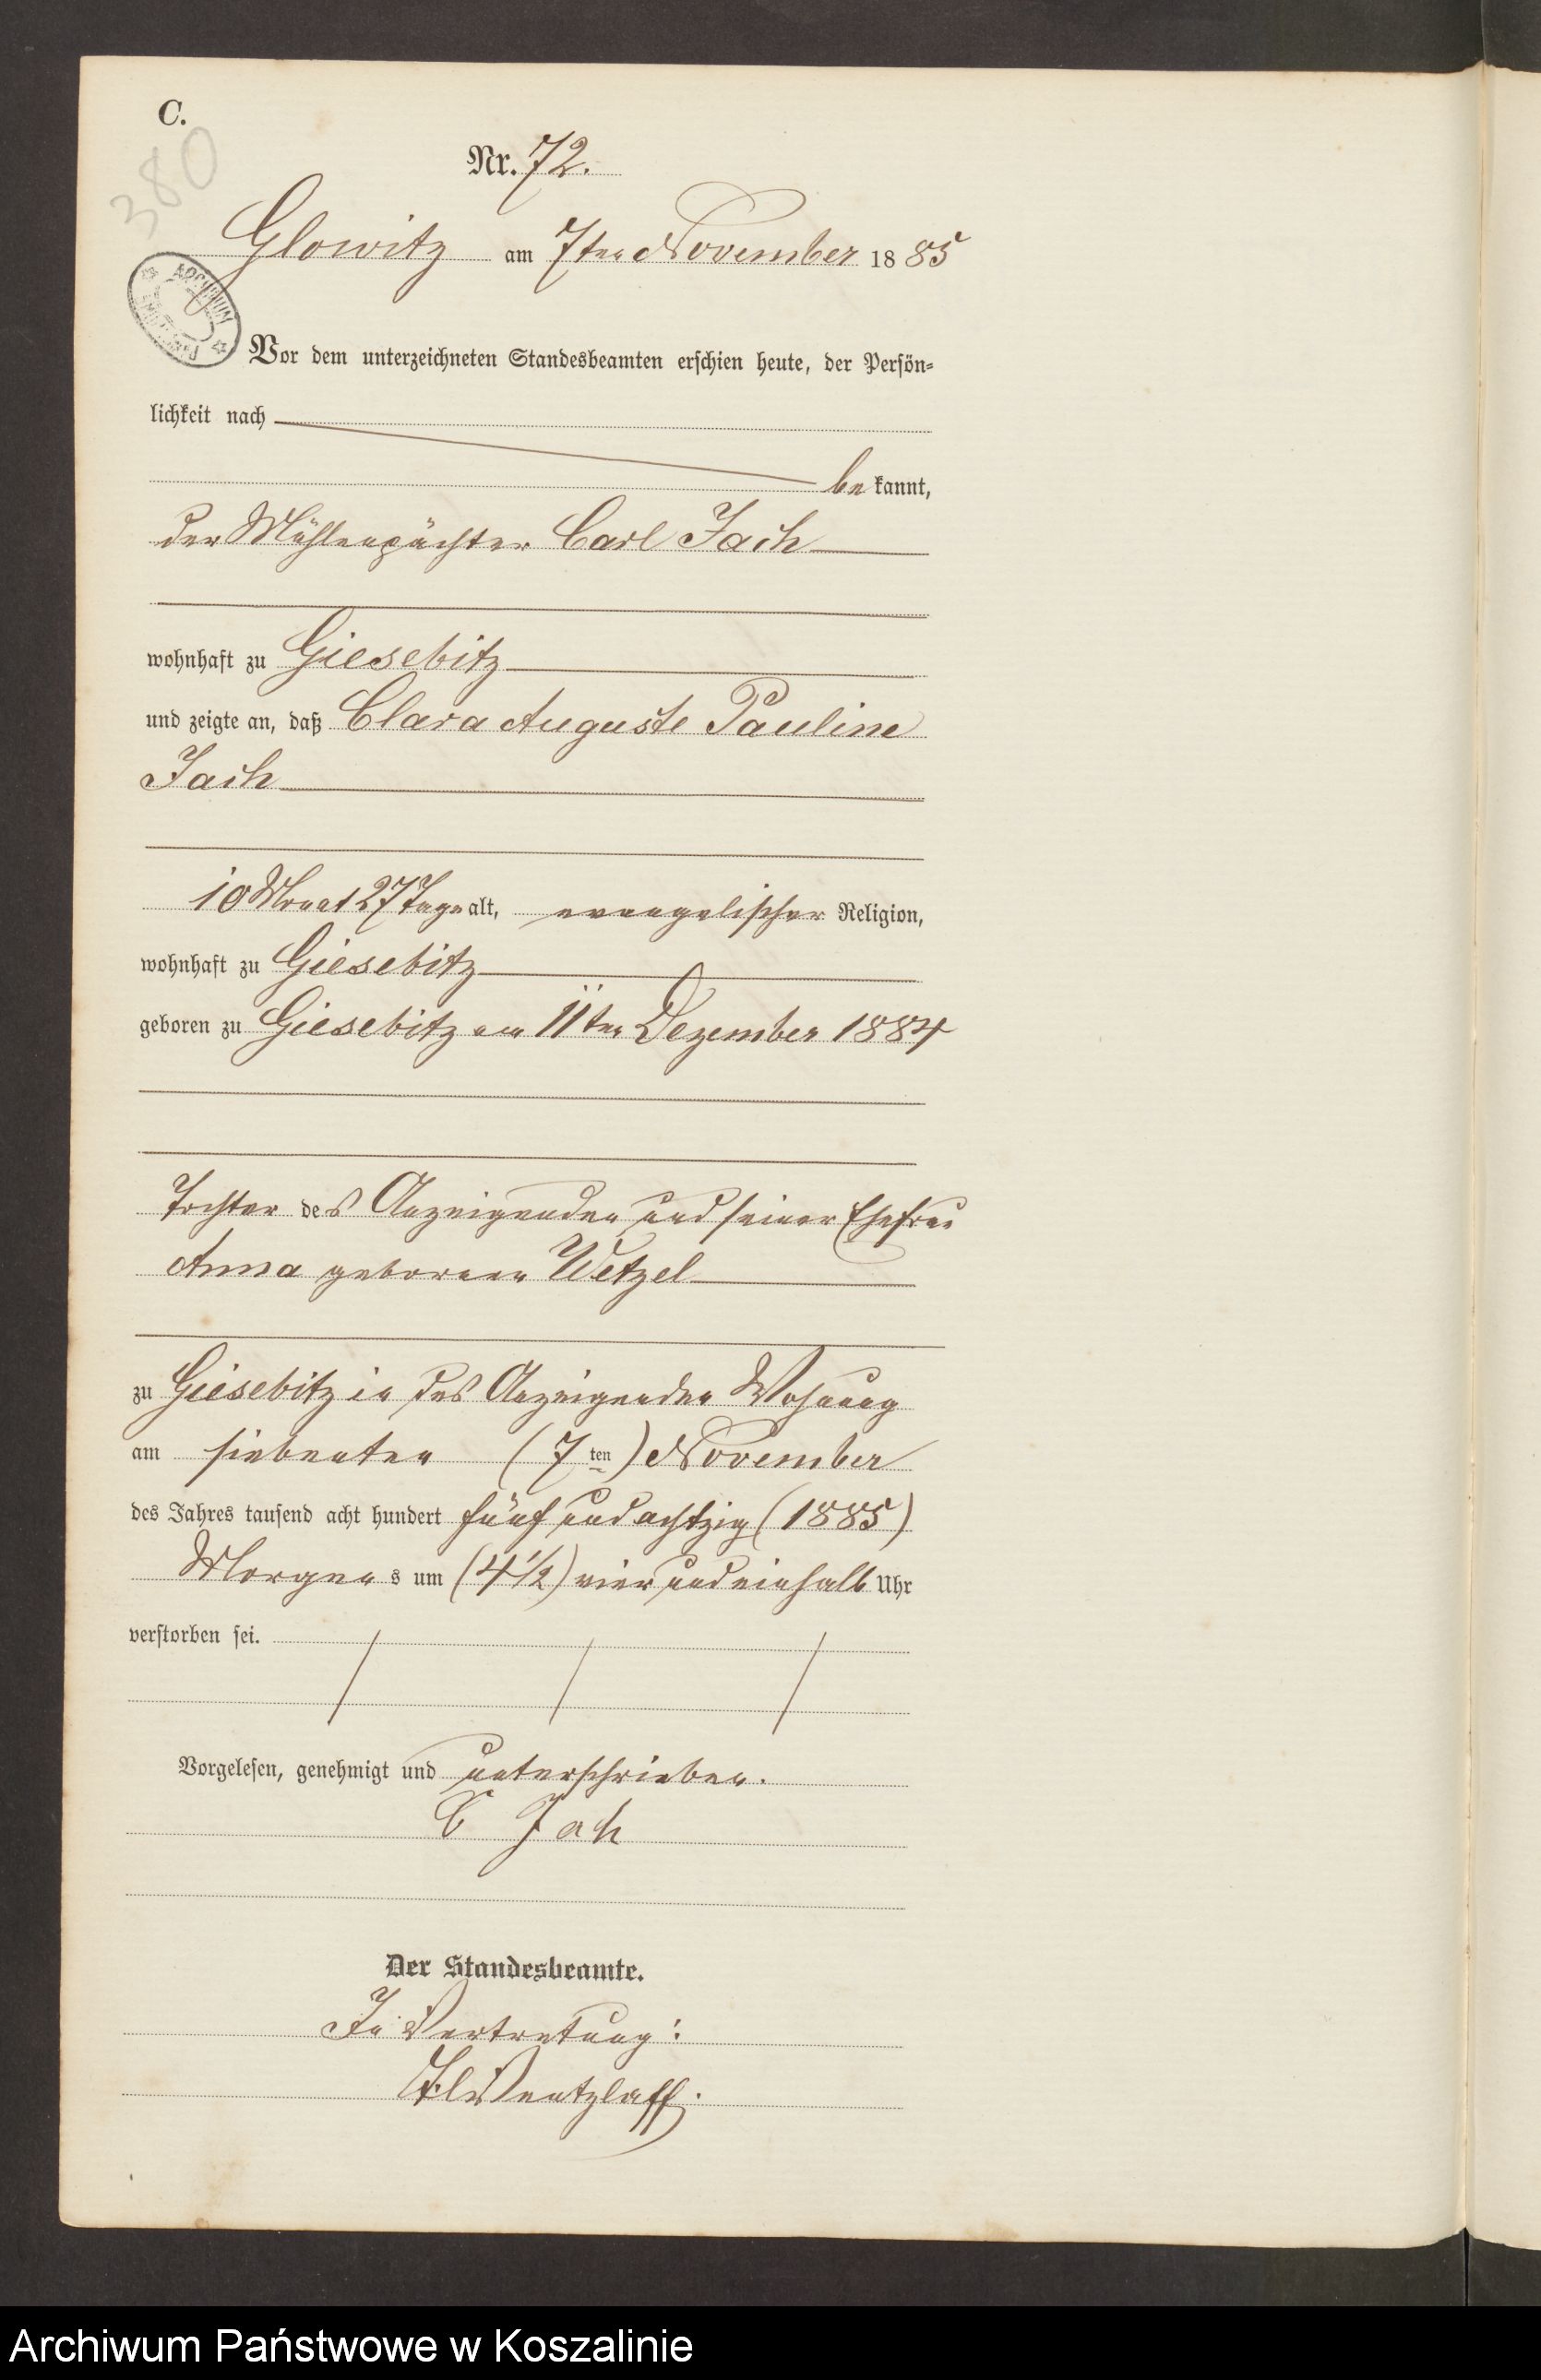 C.
380
Nr. 72.
Glowitz am 7ten November 1885
Vor dem unterzeichneten Standesbeamten erschien heute, der Persön-
lichkeit nach
bekannt,
der Mühlenpächter Carl Jach
wohnhaft zu Giesebitz
und zeigte an, daß Clara Auguste Pauline
Jach
10 Monat 27 Tage alt, evangelischer Religion,
wohnhaft zu Giesebitz
geboren zu Giesebitz am 11ten Dezember 1884
Tochter des Anzeigenden und seiner Ehefrau
Anna geborenen Wetzel
zu Giesebitz in des Anzeigenden Wohnung
am siebenten (7ten) November
des Jahres tausend acht hundert fünf und achtzig (1885)
Morgens um (4 1/2) vier und einhalb Uhr
verstorben sei.
Vorgelesen, genehmigt und unterschrieben.
C Jah
Der Standesbeamte.
In Vertretung:
Wentzlaff.
Archiwum Państwowe w Koszalinie